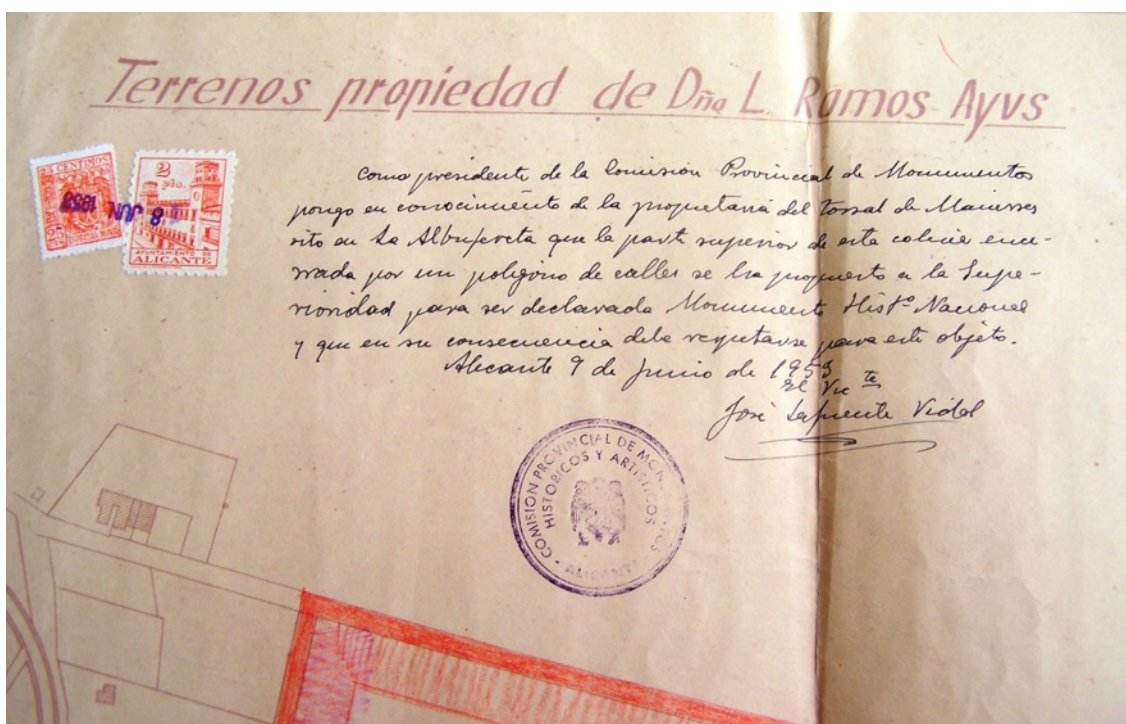 Terrenos propiedad de Dña L. Ramos Ayus
25 CENTIMOS
25
ESPECIAL MOVIL
8 JUN 1953
2
pta.
AYUNTAMIENTO DE
ALICANTE
Como presidente de la Comisión Provincial de Monumentos
pongo en conocimiento de la propietaria del tossal de Manisses
sito en La Albufereta que la parte superior de esta colina ence-
rrada por un polígono de calles se ha propuesto a la Supe-
rioridad para ser declarada Monumento Histº Nacional
y que en su consecuencia debe respetarse para este objeto.
Alicante 9 de Junio de 1953
El Vic te
José Lafuente Vidal
COMISION PROVINCIAL DE MONUMENTOS
HISTORICOS Y ARTISTICOS
ALICANTE